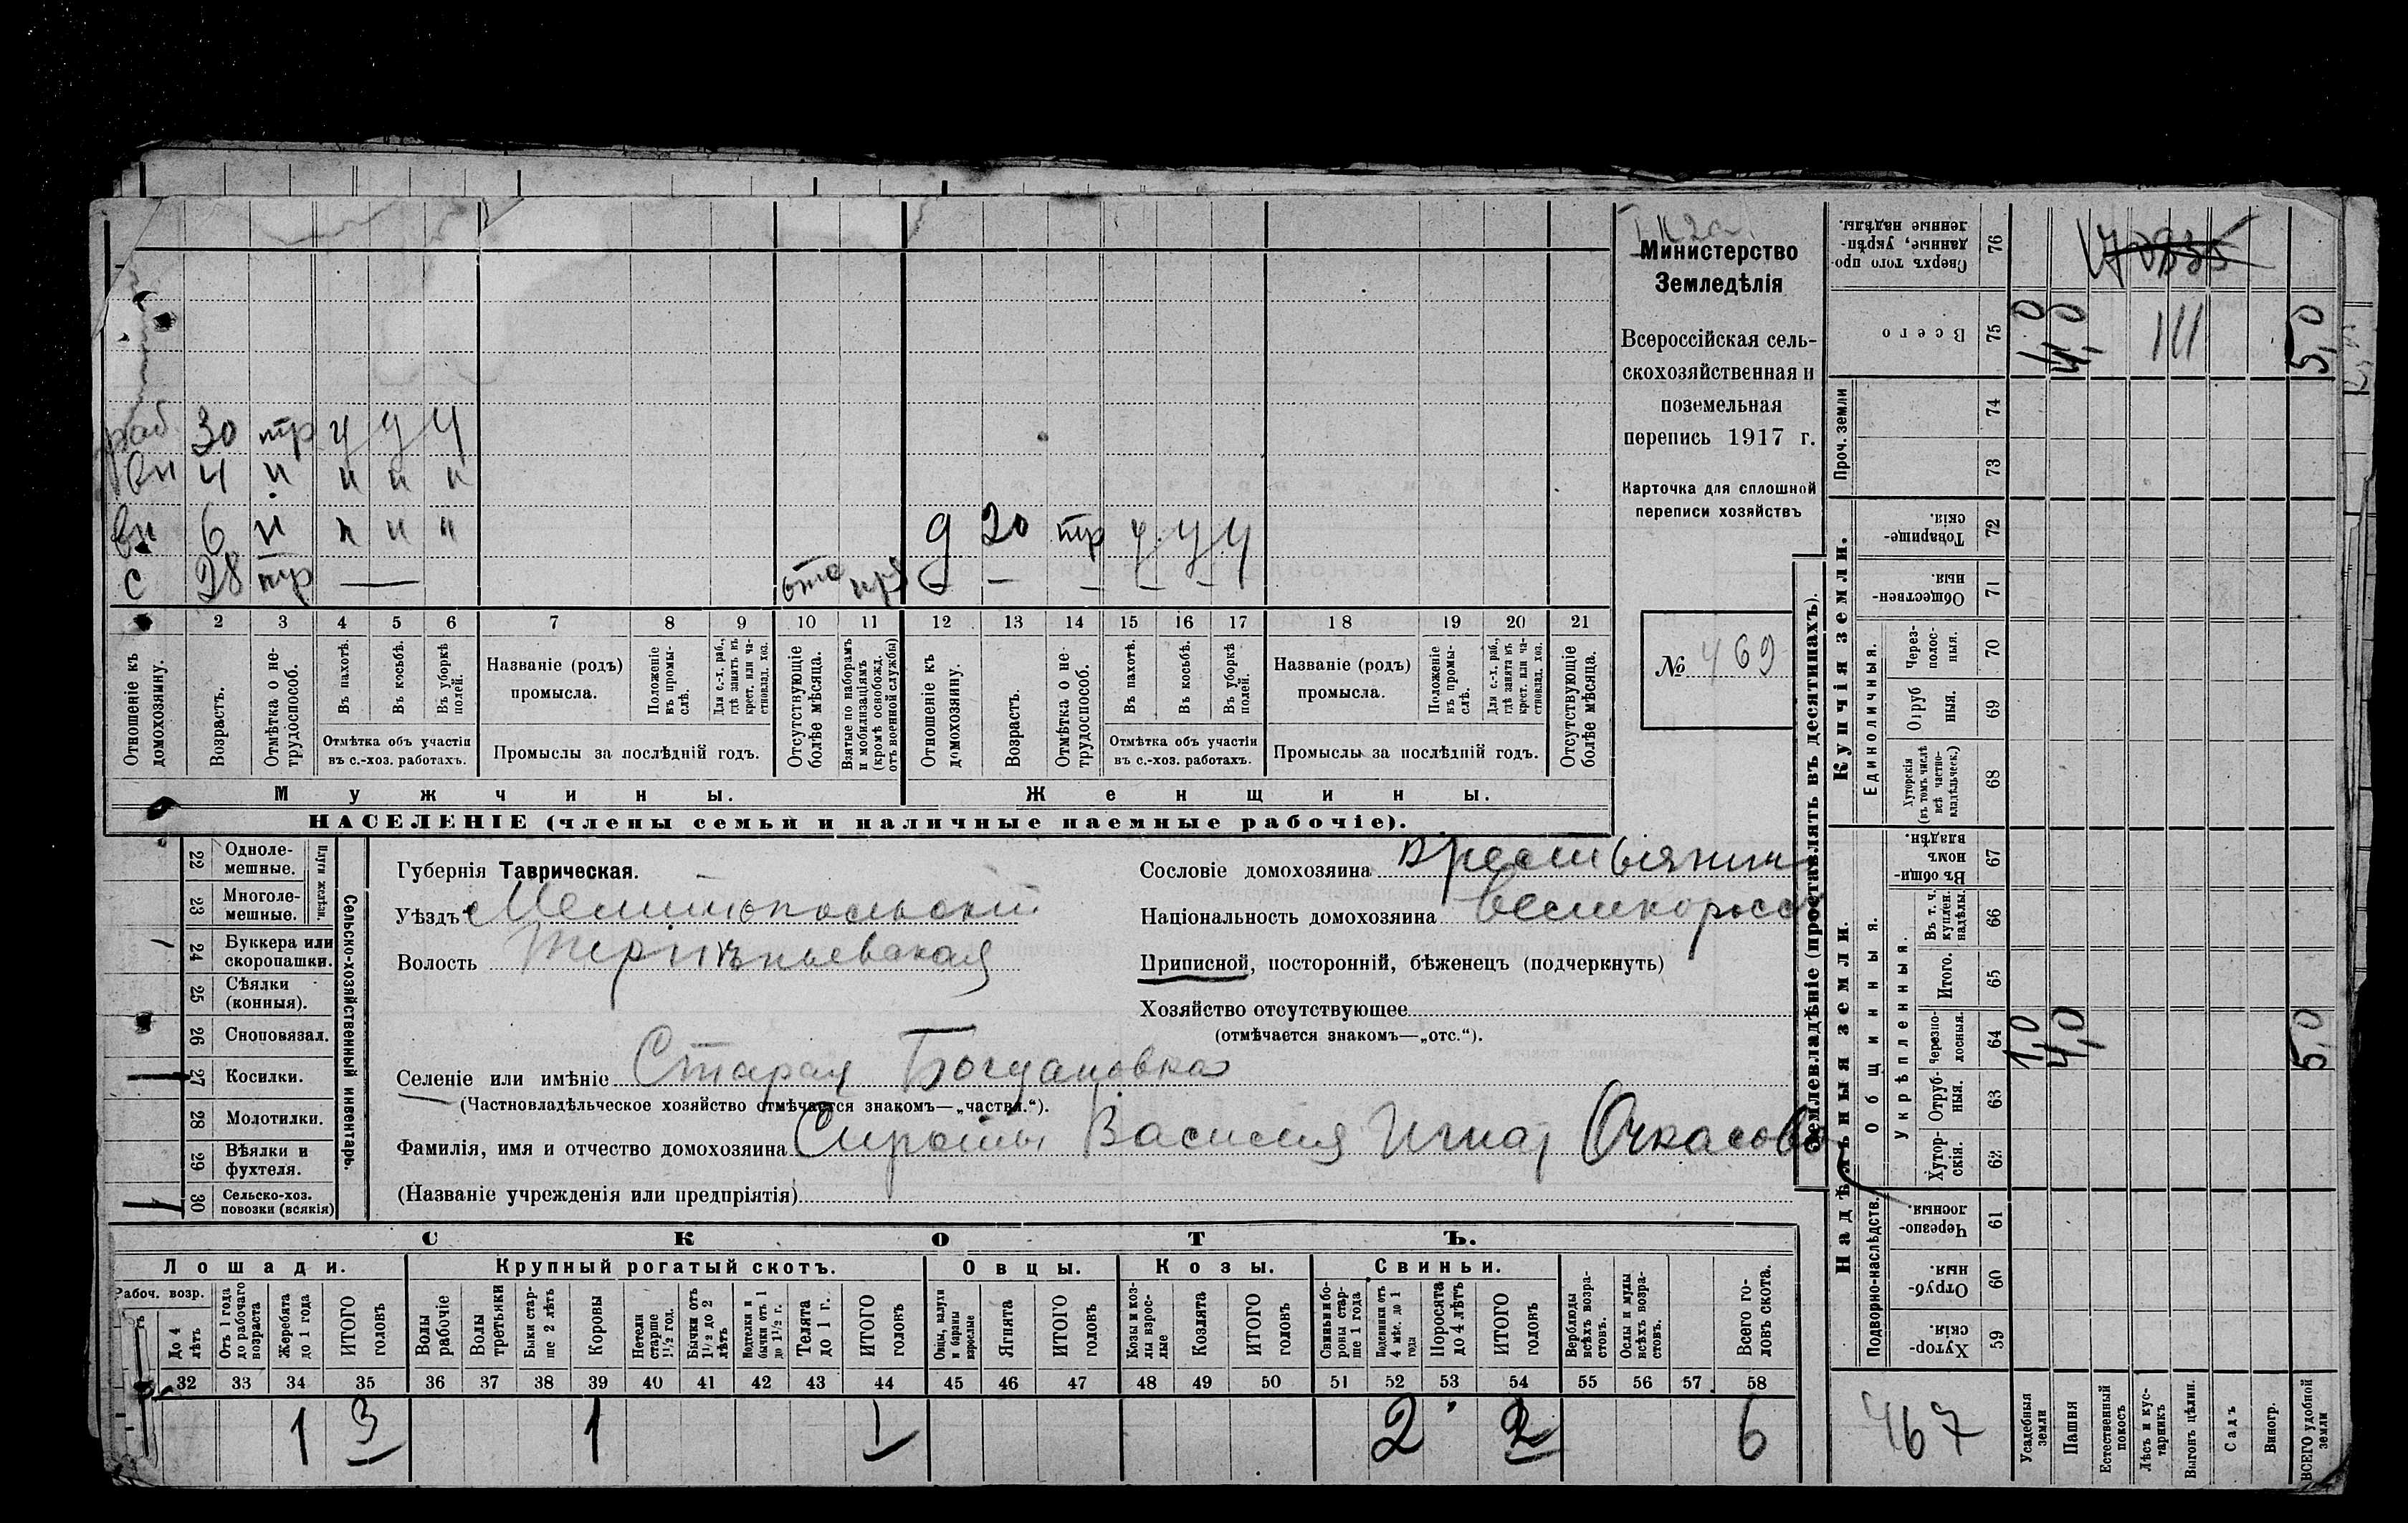 Министерство
Земледѣлія
Всероссійская сель-
скохозяйственная и
поземельная
перепись 1917 г.
Карточка для сплошной
переписи хозяйствъ
№ 469
раб 30 тр у у у
вн 4 и и и и
вн 6 и и и и
с 28 тр —
д 20 тр у у у
2 3 4 5 6 7 8 9 10 11 12 13 14 15 16 17 18 19 20 21
Отношеніе къ домохозяину.
Возрастъ.
Отмѣтка о не-трудоспособ.
Въ пахотѣ.
Въ косьбѣ.
Въ уборкѣ полей.
Отмѣтка объ участіи въ с.-хоз. работахъ.
Названіе (родъ) промысла.
Положеніе въ промы-слѣ.
Для с.-х. раб., гдѣ занятъ въ крест. или ча-стновлад. хоз.
Промыслы за послѣдній годъ.
Отсутствующіе болѣе мѣсяца.
Взятые по наборамъ и мобилизаціямъ (кромѣ освобожд. отъ военной службы)
Отношеніе къ домохозяину.
Возрастъ.
Отмѣтка о не-трудоспособ.
Въ пахотѣ.
Въ косьбѣ.
Въ уборкѣ полей.
Отмѣтка объ участіи въ с.-хоз. работахъ.
Названіе (родъ) промысла.
Положеніе въ промы-слѣ.
Для с.-х. раб., гдѣ занята въ крест. или ча-стновлад. хоз.
Промыслы за послѣдній годъ.
Отсутствующіе болѣе мѣсяца.
Мужчины.
Женщины.
НАСЕЛЕНІЕ (члены семьи и наличные наемные рабочіе).
22 Одноле-мешные.
23 Многоле-мешные.
Плуги желѣзн.
24 Буккера или скоропашки.
25 Сѣялки (конныя).
26 Сноповязал.
27 Косилки.
28 Молотилки.
29 Вѣялки и фухтеля.
30 Сельско-хоз. повозки (всякія)
Сельско-хозяйственный инвентарь.
Губернія Таврическая.
Уѣздъ Мелитопольскій
Волость
Селеніе или имѣніе Старая Богдановка
(Частновладѣльческое хозяйство отмѣчается знакомъ—„частвл.“).
Фамилія, имя и отчество домохозяина Сироты Василия Игнат Очкасова
(Названіе учрежденія или предпріятія)
Сословіе домохозяина крестьянин
Національность домохозяина великоросс
Приписной, посторонній, бѣженецъ (подчеркнуть)
Хозяйство отсутствующее
(отмѣчается знакомъ—„отс.“).
СКОТЪ.
Лошади.
Крупный рогатый скотъ.
Овцы.
Козы.
Свиньи.
Рабоч. возр.
До 4 лѣтъ
Отъ 1 года до рабочаго возраста
Жеребята до 1 года
ИТОГО головъ
Волы рабочіе
Волы третьяки
Быки стар-ше 2 лѣтъ
Коровы
Нетели старше 1½ год.
Бычки отъ 1½ до 2 лѣтъ
Подтелки и бычки отъ 1 до 1½ г.
Телята до 1 г.
ИТОГО головъ
Овцы, валухи и бараны взрослые
Ягнята
ИТОГО головъ
Козы и коз-лы взрос-лые
Козлята
ИТОГО головъ
Свиньи и бо-ровы стар-ше 1 года
Подсвинки отъ 4 мѣс. до 1 года
Поросята до 4 лѣтъ
ИТОГО головъ
Верблюды всѣхъ возра-стовъ.
Ослы и мулы всѣхъ возра-стовъ.
Всего го-ловъ скота.
32 33 34 35 36 37 38 39 40 41 42 43 44 45 46 47 48 49 50 51 52 53 54 55 56 57 58
1 3 1 1 2 2 6
Землевладѣніе (проставлять въ десятинахъ).
Надѣльныя земли.
Купчія земли.
Проч. земли
Подворно-наслѣдств.
Общинныя.
Укрѣпленныя.
Единоличныя.
Сверхъ того про-данные, укрѣп-ленные надѣлы. 76
Всего 75
74
73
Товарище-скія. 72
Обществен-ныя. 71
Через-полос-ныя. 70
Отруб ныя. 69
Хуторскія (въ томъ числѣ всѣ частно-владѣльческ.) 68
Въ общин-номъ владѣн. 67
Въ т. ч. куплен. надѣлы. 66
Итого. 65
Черезпо-лосныя. 64
Отруб-ныя. 63
Хутор-скія. 62
Черезпо-лосныя. 61
Отруб-ныя. 60
Хутор-скія. 59
1,0
4,0
5,0
1,0
4,0
5,0
467
Усадебныя земли
Пашня
Естественный покосъ
Лѣсъ и кус-тарникъ
Выгонъ цѣлин.
Садъ
Виногр.
ВСЕГО удобной земли